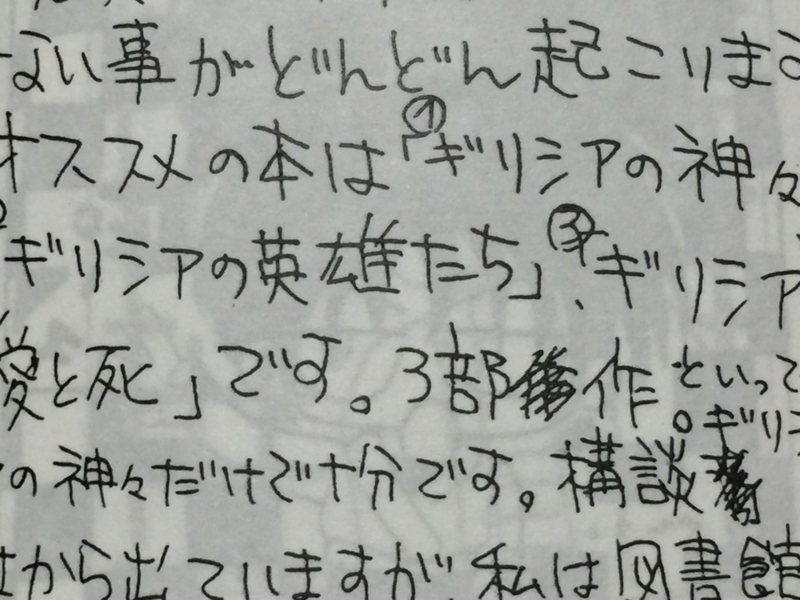 ない事がどんどん起こりまる
オススメの本は①「ギリシアの神々
ギリシアの英雄たち」、③ギリシア
愛と死」です。3部作といって
。ギリシ
の神々だけで十分です。構談
から出ていますが、私は図書館